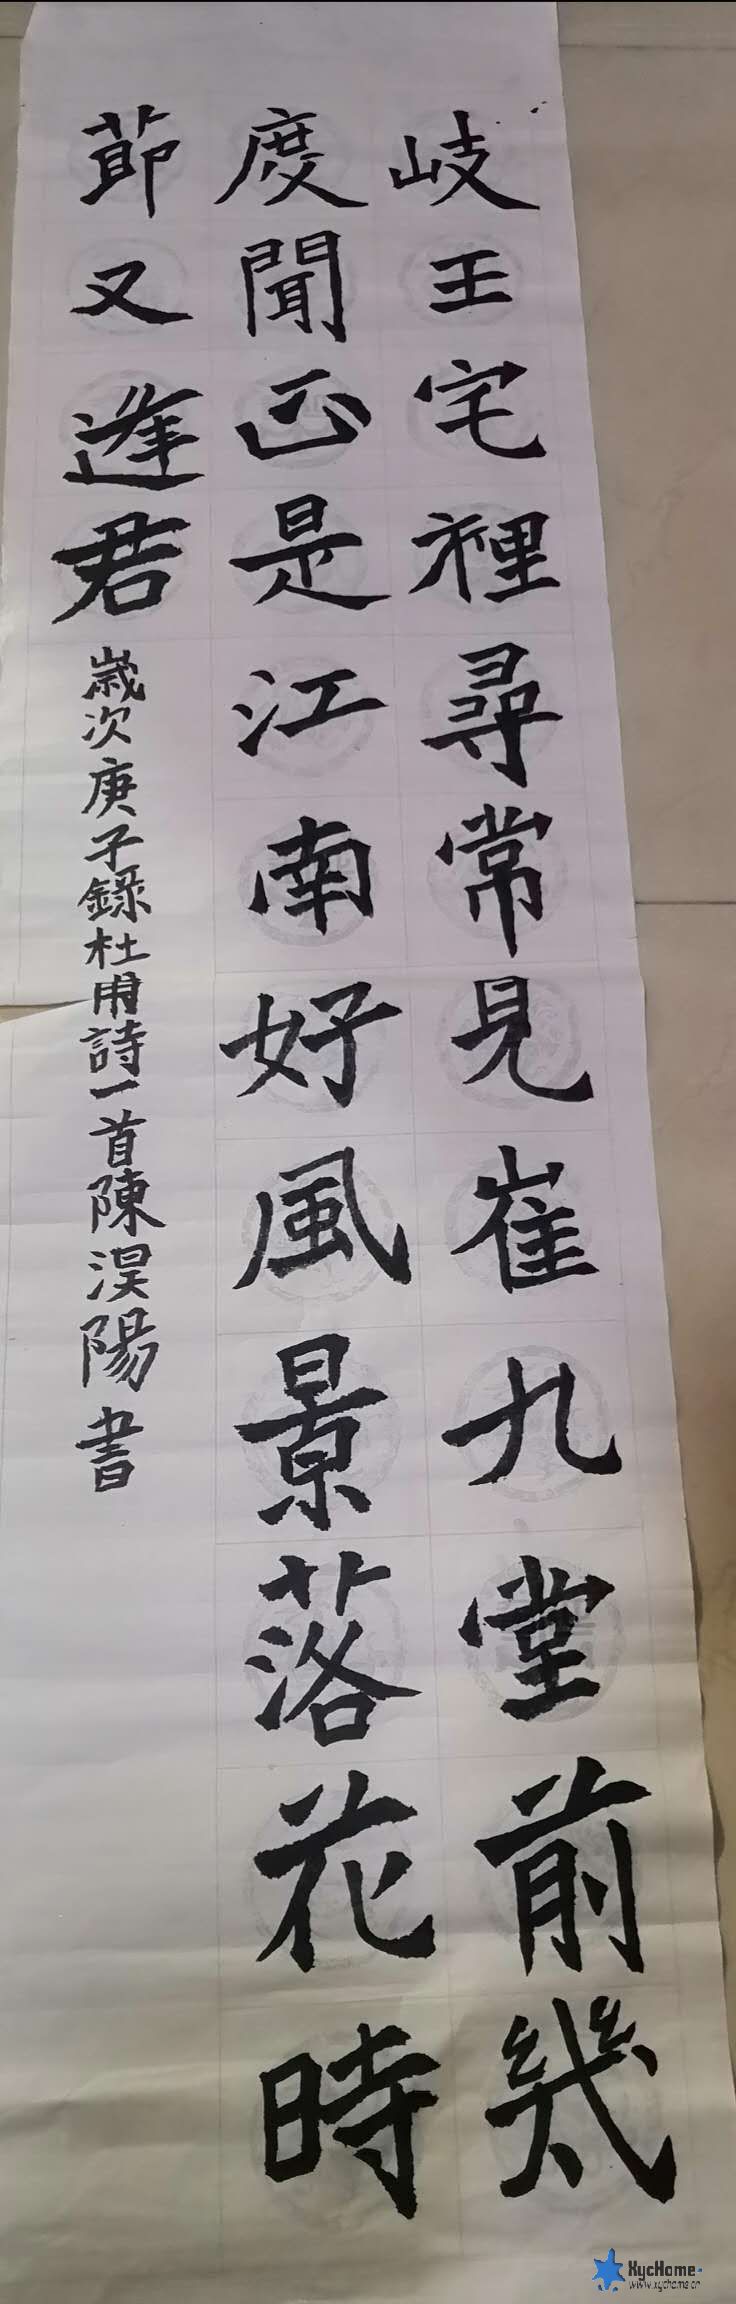 岐王宅裡尋常見崔九堂前幾
度聞正是江南好風景落花時
節又逢君
歲次庚子錄杜甫詩一首陳淏陽書
XycHome
www.xychome.cn